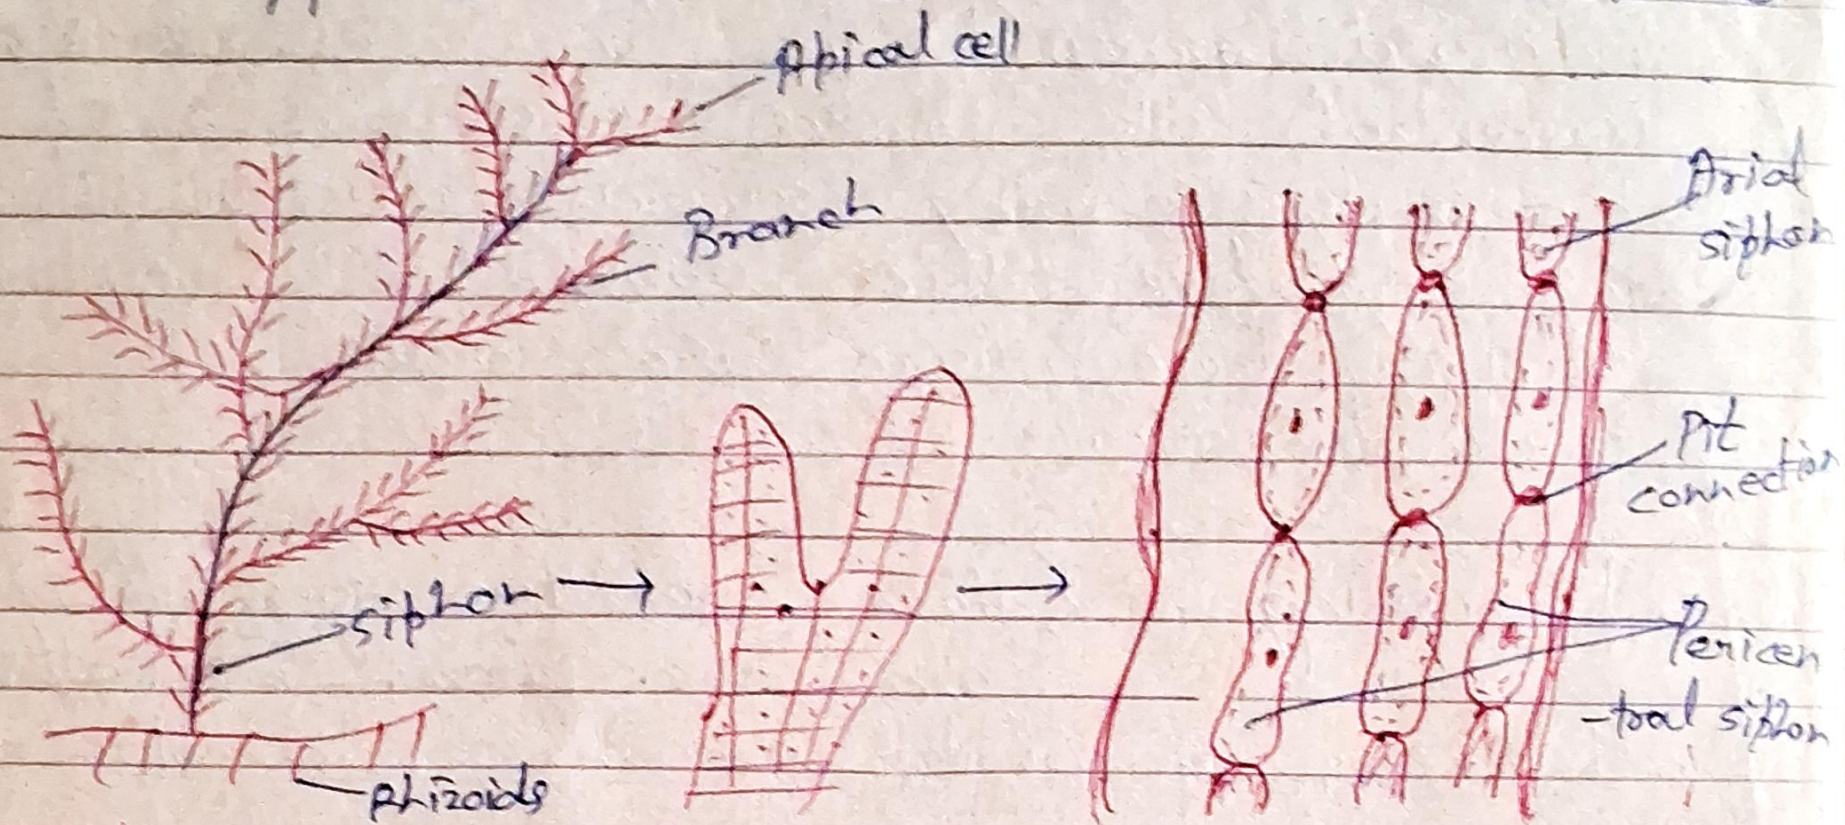 Apical cell
Branch
Arial
siphon
Pit
connection
siphon
Pericen
-tral siphon
Rhizoids